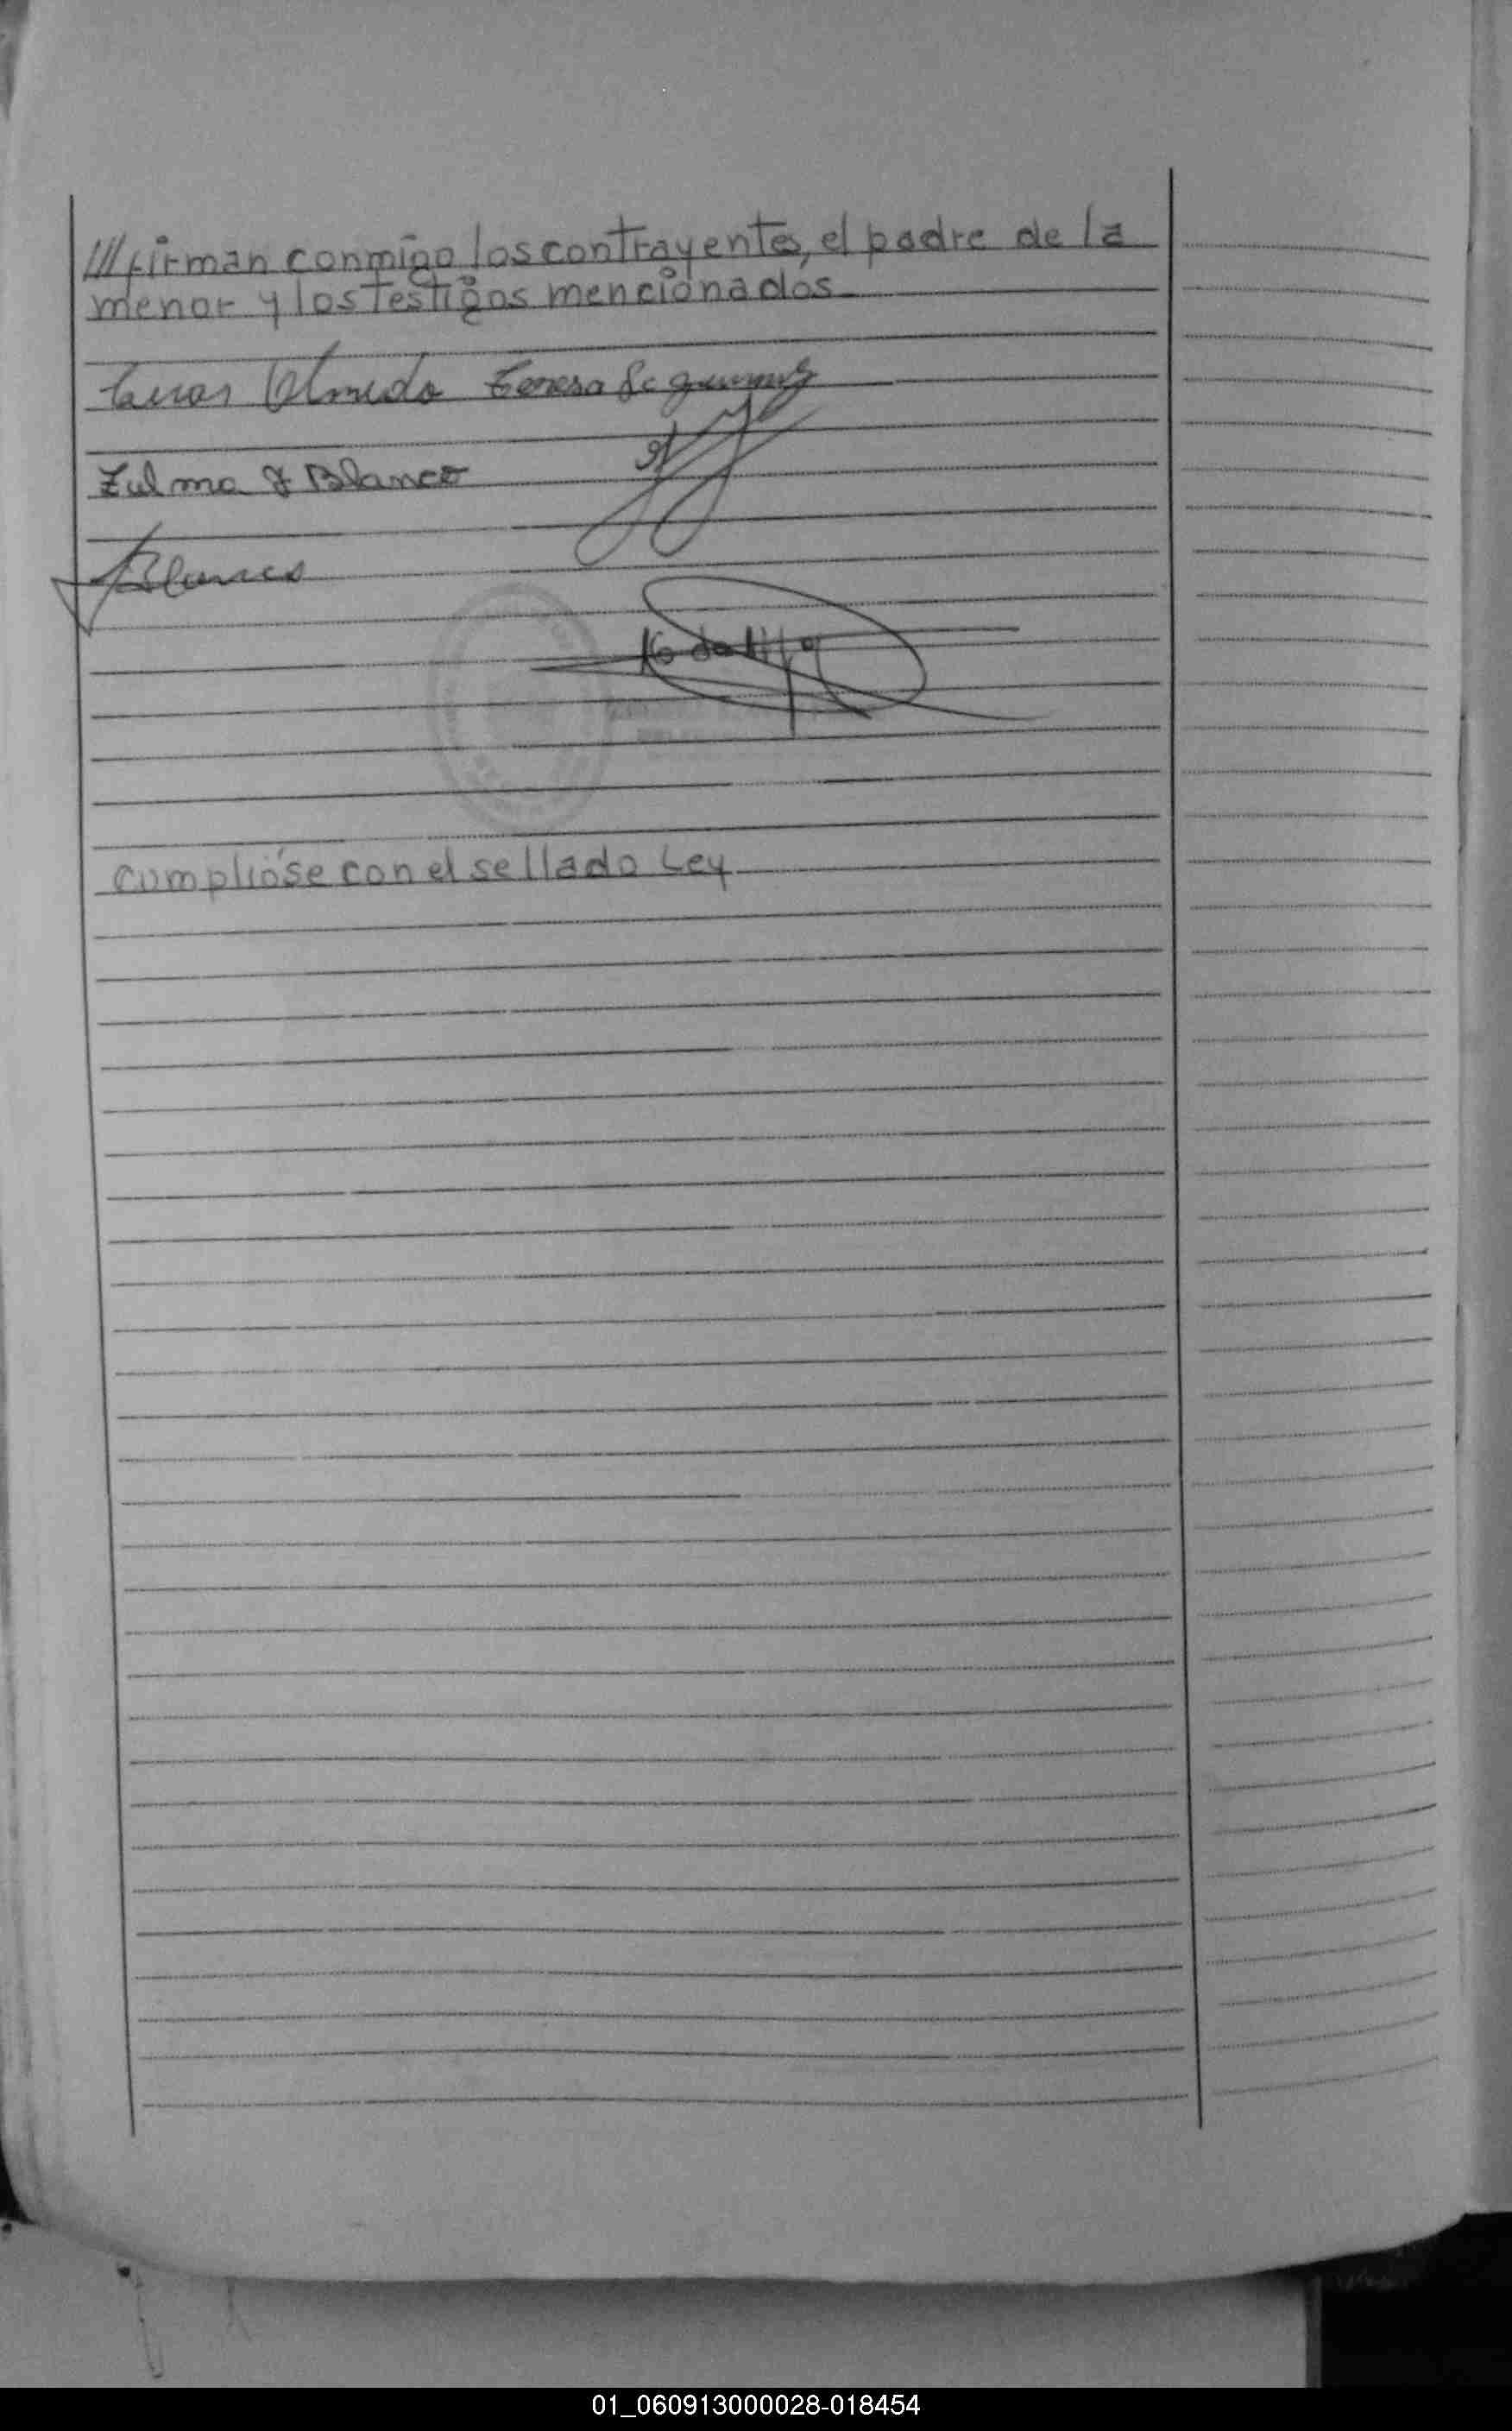 ///firman conmigo los contrayentes, el padre de la
menor y los testigos mencionados
Olmedo Teresa
Zulma J Blanco
Blanco
cumplióse con el sellado Ley
01_060913000028-018454